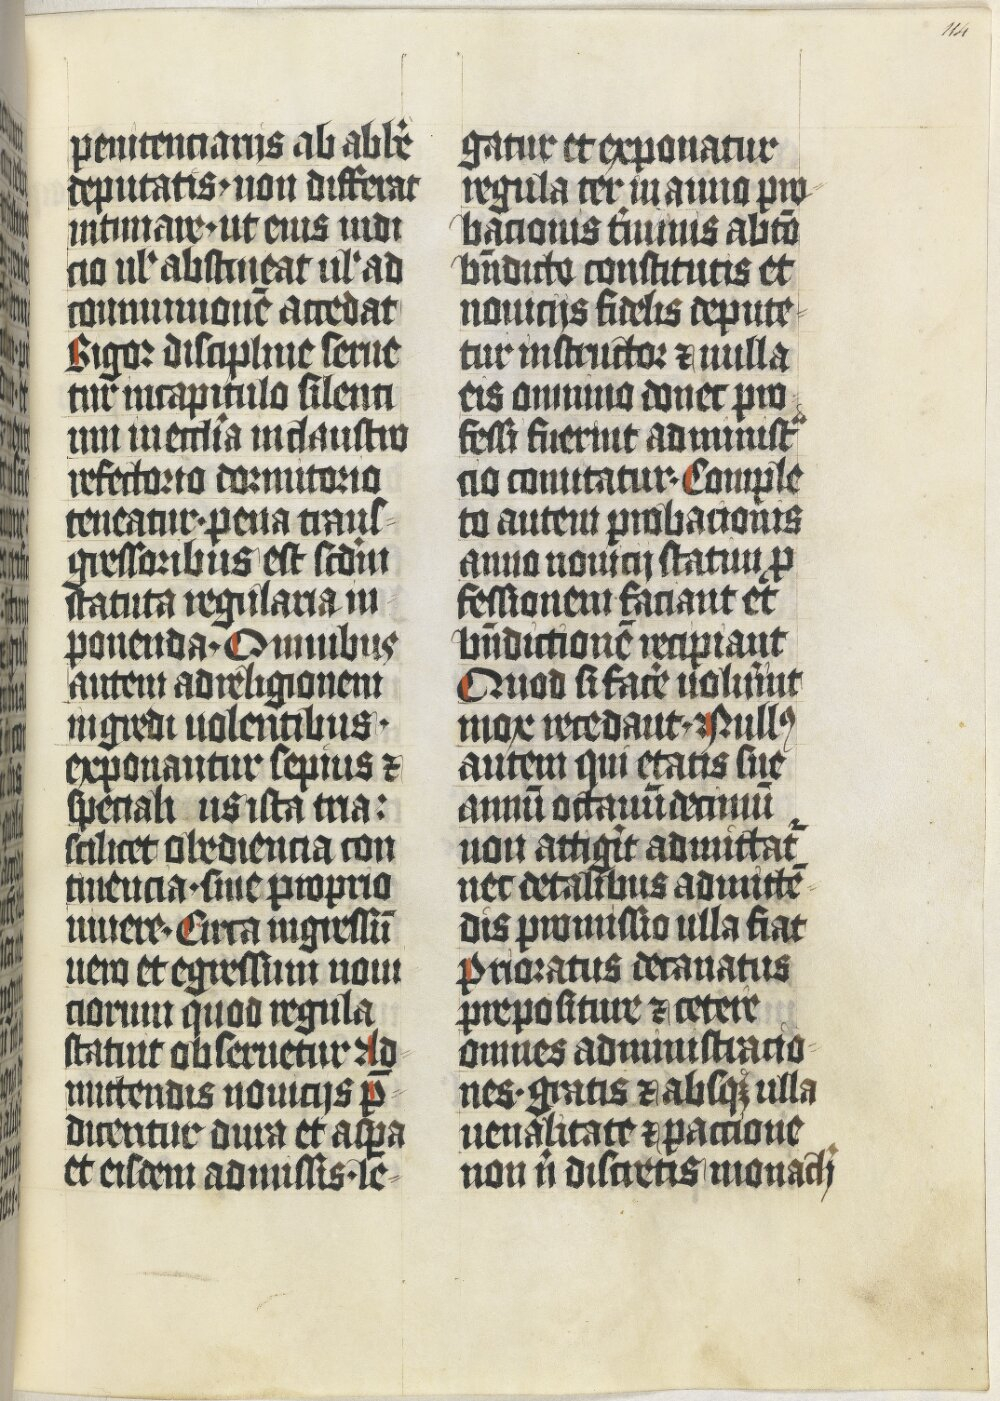 114
penitenciarijs ab abb̄e
deputatis· non differat
intimare· ut eius iudi
cio ul' abstineat ul' ad
communionē accedat
Rigor discipline serue
tur̄ in capitulo silenti
um in eccl̄ia in claustro
refectorio dormitorio
teneatur· pena trans-
gressoribus est scd̄m
statuta regularia in-
ponenda· Omnibus
autem ad religionem
ingredi uolentibus·
exponantur sepius ⁊
speciali us ista tria:
scilicet obediencia con
tinencia· sine proprio
uiuere· Circa ingressū
uero et egressum noui
ciorum quod regula
statuit obseruetur Ad-
mittendis nouicijs p̄-
dicentur dura et aspa
et eisdem admissis· le-
gatur et exponatur
regula ter in anno pro-
bacionis t̄minus abtō
bn̄dicto constitutis et
nouicijs fidelis depute-
tur instructor ⁊ nulla
eis omnino donec pro-
fessi fuerint administ̄ᵃ
cio comitatur· Comple
to autem probacionis
anno nouicij statim p
fessionem faciant et
bn̄dictionē recipiant
Quod si facē nolūint
mox recedant· Nullꝰ
autem qui etatis sue
annū octauūdecimū
non attigīt admittat̄
nec de talibus admittē-
dis promissio ulla fiat
Prioratus decanatus
prepositure ⁊ cetere
omnes administracio-
nes· gratis ⁊ absqꝫ ulla
uenalitate ⁊ pactione
non n̄ discretis monach̄